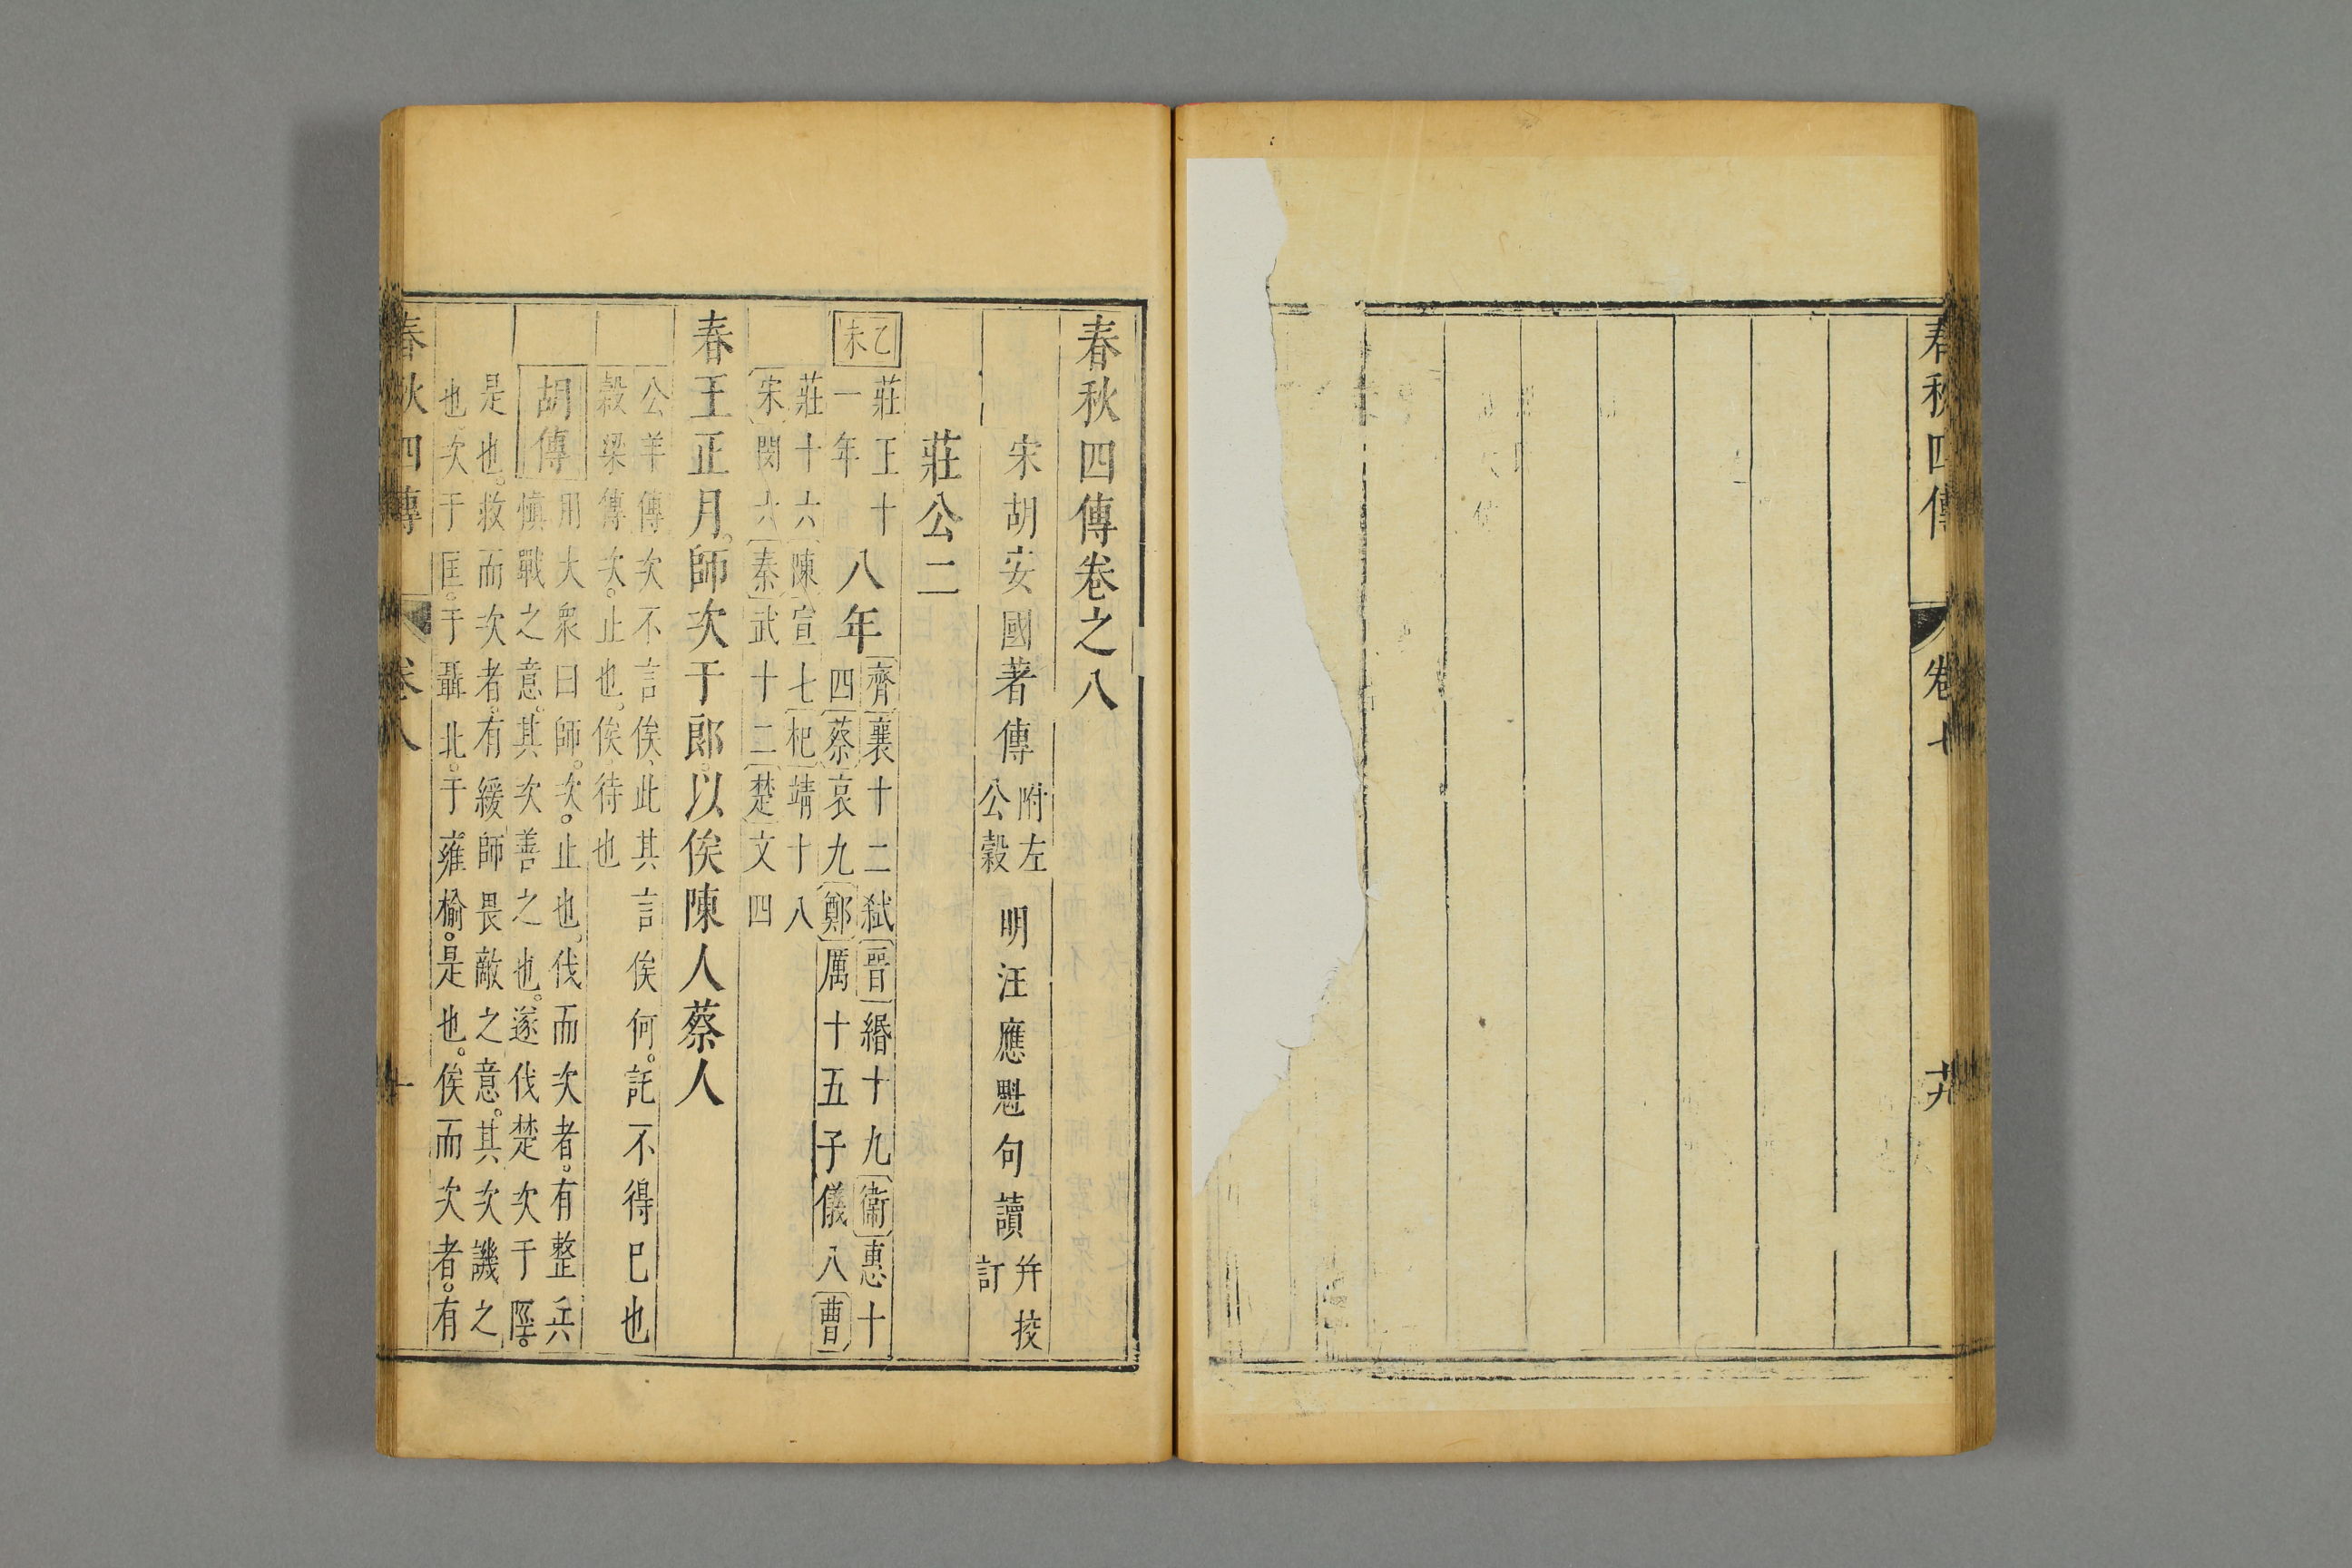 春秋四傳
卷七
十九
春秋四傳卷之八
宋胡安國著傳
附左
公穀
明汪應魁句讀
并挍
訂
莊公二
乙
未
莊王十
一年
八年
齊襄十二弑晉緡十九衞惠十
四蔡哀九鄭厲十五子儀八曹
莊十六陳宣七杞靖十八
宋閔六秦武十二楚文四
春王正月。師次于郎。以俟陳人蔡人
公羊傳次不言俟、此其言俟何。託不得已也
穀梁傳次。止也。俟、待也
胡傳
用大眾曰師。次。止也、伐而次者。有整兵
慎戰之意。其次善之也。遂伐楚次于陘。
是也。救而次者。有緩師畏敵之意。其次譏之
也。次于匡。于聶北。于雍榆。是也。俟而次者。有
春秋四傳
卷八